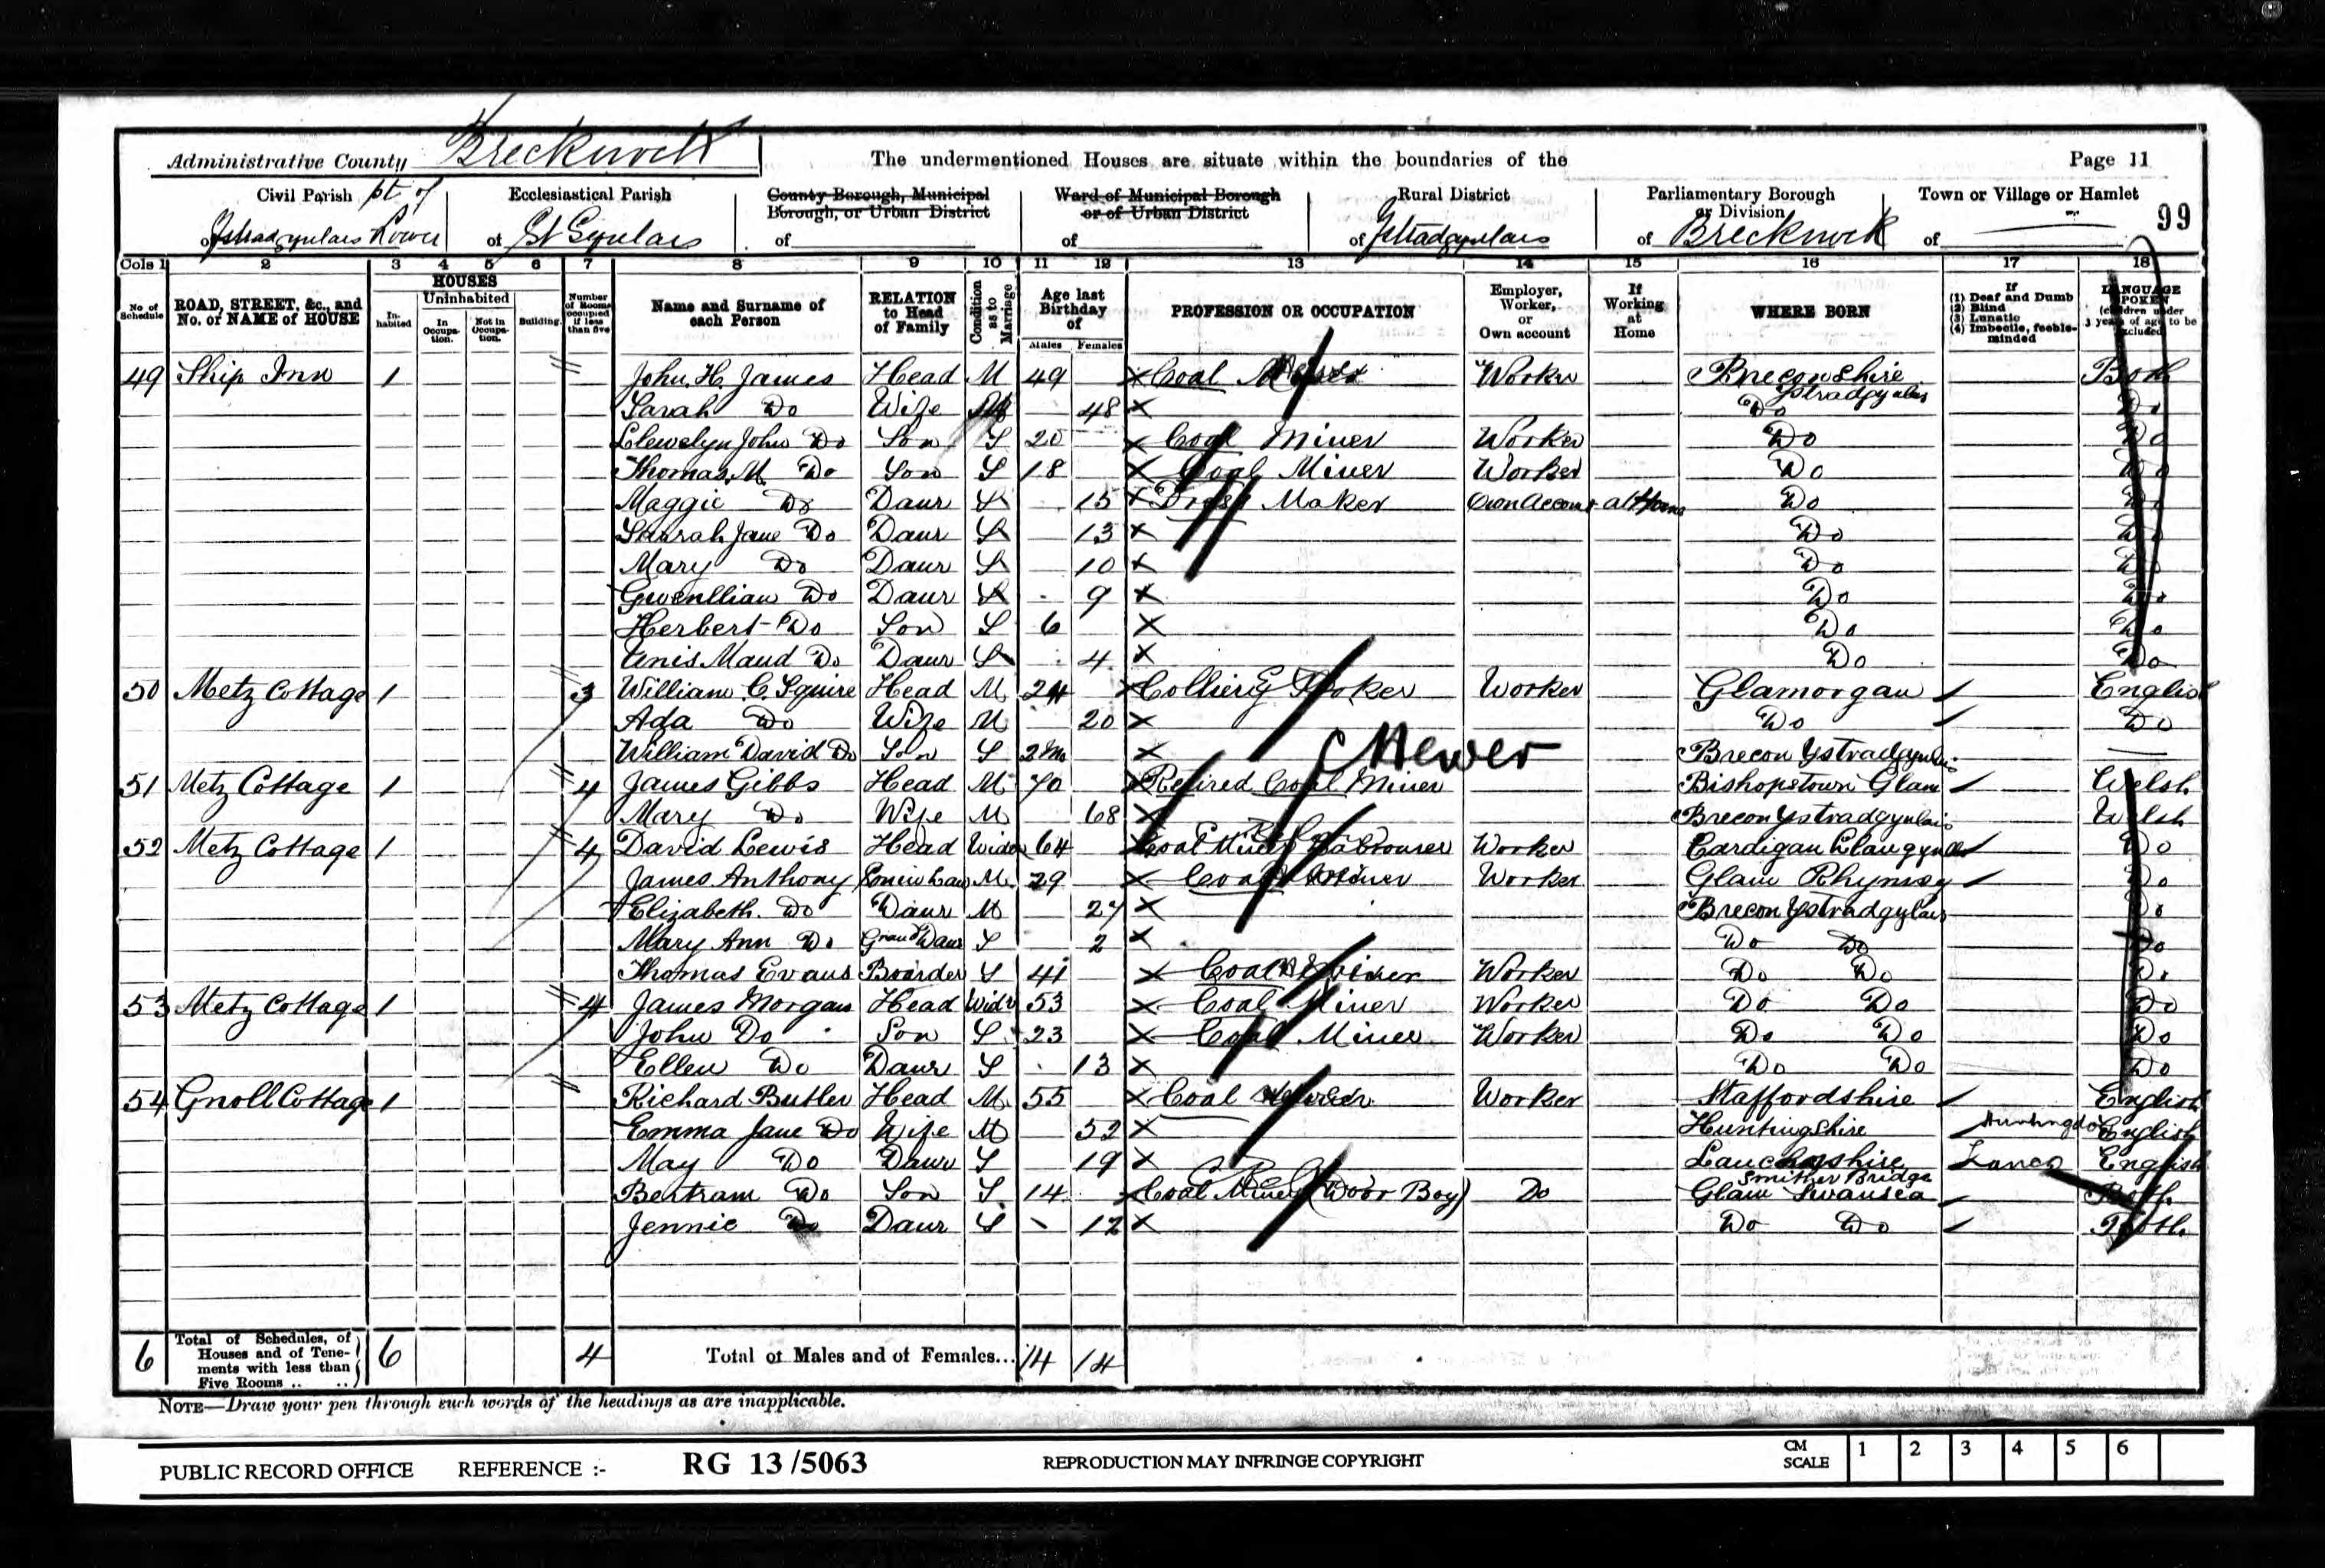 Administrative County Brecknock
The undermentioned Houses are situate within the boundaries of the
Page 11
Civil Parish pt of
of Ystradgynlais Lower
Ecclesiastical Parish
of St Gynlais
County Borough, Municipal
Borough, or Urban District
of
Ward of Municipal Borough
or of Urban District
of
Rural District
of Ystradgynlais
Parliamentary Borough
or Division
of Brecknock
Town or Village or Hamlet
of —
99
Cols 1 2 3 4 5 6 7 8 9 10 11 12 13 14 15 16 17 18
No of Schedule
ROAD, STREET, &c., and No. or NAME of HOUSE
HOUSES
Inhabited
Uninhabited
In Occupation.
Not in Occupation.
Building.
Number of Rooms occupied if less than five
Name and Surname of each Person
RELATION to Head of Family
Condition as to Marriage
Age last Birthday of
Males Females
PROFESSION OR OCCUPATION
Employer, Worker, or Own account
If Working at Home
WHERE BORN
If
(1) Deaf and Dumb
(2) Blind
(3) Lunatic
(4) Imbecile, feeble-minded
LANGUAGE SPOKEN (children under 3 years of age to be excluded)
49 Ship Inn 1 John H. James Head M 49 X Coal Worker Breconshire Ystradgynlais Both
Sarah Do Wife M 48 X Do Do
Llewelyn John Do Son S 20 X Coal Miner Worker Do Do
Thomas M. Do Son S 18 X Coal Miner Worker Do Do
Maggie Do Daur S 15 X Dress Maker Own Account at Home Do Do
Sarah Jane Do Daur S 13 X Do Do
Mary Do Daur S 10 X Do Do
Gwenllian Do Daur S 9 X Do Do
Herbert Do Son S 6 X Do Do
Anis Maud Do Daur S 4 X Do Do
50 Metz Cottage 1 3 William C. Squire Head M 24 X Colliery Stoker Worker Glamorgan English
Ada Do Wife M 20 X Do Do
William David Do Son S 2m X Brecon Ystradgynlais —
Hewer
51 Metz Cottage 1 4 James Gibbs Head M 70 X Retired Coal Miner Bishopstown Glam Welsh
Mary Do Wife M 68 X Brecon Ystradgynlais Welsh
52 Metz Cottage 1 4 David Lewis Head Widr 64 X Coal Miner Labourer Worker Cardigan Do
James Anthony Son in Law M 29 X Coal Worker Glam Rhymney Do
Elizabeth Do Daur M 27 X Brecon Ystradgylais Do
Mary Ann Do Grand Daur S 2 X Do Do Do
Thomas Evans Boarder S 41 X Coal Worker Do Do Do
53 Metz Cottage 1 4 James Morgan Head Widr 53 X Coal Miner Worker Do Do Do
John Do Son S 23 X Coal Miner Worker Do Do Do
Ellen Do Daur S 13 X Do Do Do
54 Gnoll Cottage 1 Richard Butler Head M 55 X Coal Hewer Worker Staffordshire English
Emma Jane Do Wife M 52 X Huntingshire Huntingdon English
May Do Daur S 19 X Lancashire Smither Bridge Lancs English
Bertram Do Son S 14 X Coal Miner (Door Boy) Do Glam Swansea Both
Jennie Do Daur S 12 X Do Do Both
6 Total of Schedules, of Houses and of Tenements with less than Five Rooms .. .. 6 4 Total of Males and of Females... 14 14
NOTE—Draw your pen through such words of the headings as are inapplicable.
PUBLIC RECORD OFFICE REFERENCE :- RG 13/5063 REPRODUCTION MAY INFRINGE COPYRIGHT CM SCALE 1 2 3 4 5 6